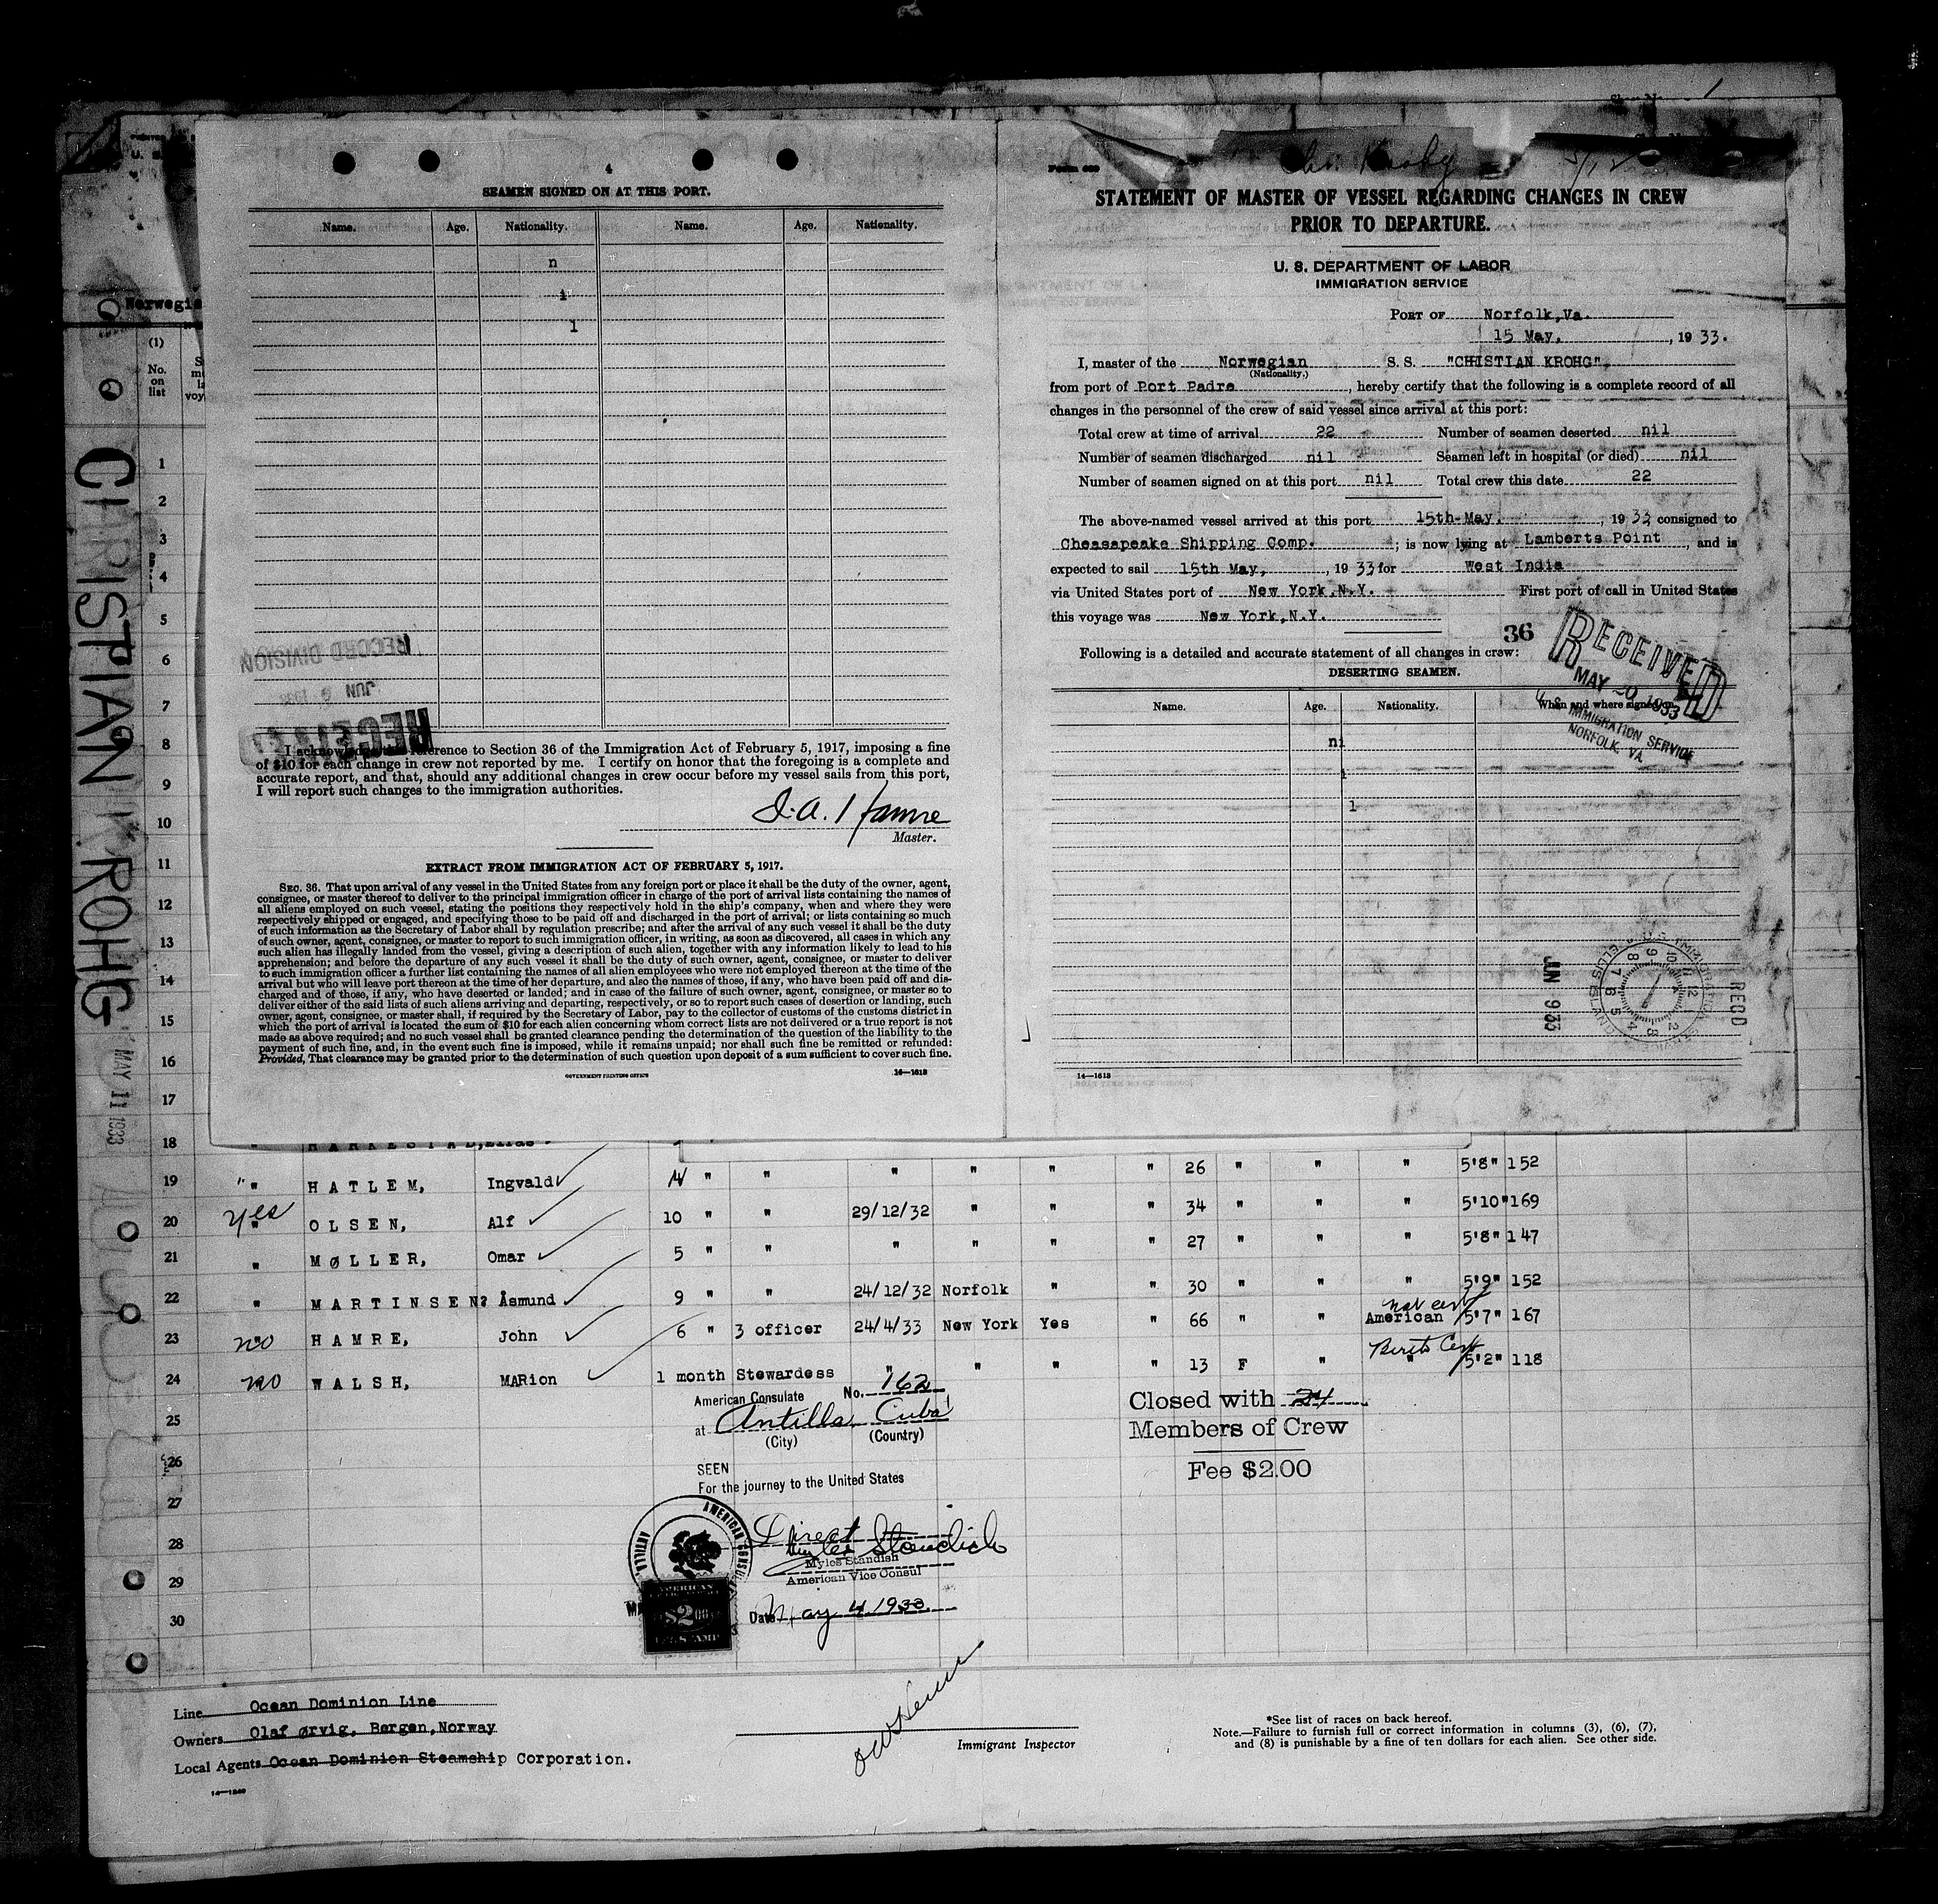 4
SEAMEN SIGNED ON AT THIS PORT.
Name. Age. Nationality. Name. Age. Nationality.
n
i
l
RECORD DIVISION
JUN
RECEIVED
I acknowledge the reference to Section 36 of the Immigration Act of February 5, 1917, imposing a fine
of $10 for each change in crew not reported by me. I certify on honor that the foregoing is a complete and
accurate report, and that, should any additional changes in crew occur before my vessel sails from this port,
I will report such changes to the immigration authorities.
Master.
EXTRACT FROM IMMIGRATION ACT OF FEBRUARY 5, 1917.
SEC. 36. That upon arrival of any vessel in the United States from any foreign port or place it shall be the duty of the owner, agent,
consignee, or master thereof to deliver to the principal immigration officer in charge of the port of arrival lists containing the names of
all aliens employed on such vessel, stating the positions they respectively hold in the ship's company, when and where they were
respectively shipped or engaged, and specifying those to be paid off and discharged in the port of arrival; or lists containing so much
of such information as the Secretary of Labor shall by regulation prescribe; and after the arrival of any such vessel it shall be the duty
of such owner, agent, consignee, or master to report to such immigration officer, in writing, as soon as discovered, all cases in which any
such alien has illegally landed from the vessel, giving a description of such alien, together with any information likely to lead to his
apprehension; and before the departure of any such vessel it shall be the duty of such owner, agent, consignee, or master to deliver
to such immigration officer a further list containing the names of all alien employees who were not employed thereon at the time of the
arrival but who will leave port thereon at the time of her departure, and also the names of those, if any, who have been paid off and dis-
charged and of those, if any, who have deserted or landed; and in case of the failure of such owner, agent, consignee, or master so to
deliver either of the said lists of such aliens arriving and departing, respectively, or so to report such cases of desertion or landing, such
owner, agent, consignee, or master, shall, if required by the Secretary of Labor, pay to the collector of customs of the customs district in
which the port of arrival is located the sum of $10 for each alien concerning whom correct lists are not delivered or a true report is not
made as above required; and no such vessel shall be granted clearance pending the determination of the question of the liability to the
payment of such fine, and, in the event such fine is imposed, while it remains unpaid; nor shall such fine be remitted or refunded:
Provided, That clearance may be granted prior to the determination of such question upon deposit of a sum sufficient to cover such fine.
GOVERNMENT PRINTING OFFICE 14—1613
Form 689
STATEMENT OF MASTER OF VESSEL REGARDING CHANGES IN CREW
PRIOR TO DEPARTURE.
U. S. DEPARTMENT OF LABOR
IMMIGRATION SERVICE
PORT OF Norfolk,Va.
15 May, , 1933.
I, master of the Norwegian S. S. "CHISTIAN KROHG",
(Nationality.)
from port of Port Padre , hereby certify that the following is a complete record of all
changes in the personnel of the crew of said vessel since arrival at this port:
Total crew at time of arrival 22 Number of seamen deserted nil
Number of seamen discharged nil Seamen left in hospital (or died) nil
Number of seamen signed on at this port nil Total crew this date 22
The above-named vessel arrived at this port 15th May, , 1933, consigned to
Cheasapeake Shipping Comp. ; is now lying at Lamberts Point , and is
expected to sail 15th May, , 1933 for West India
via United States port of New York,N.Y. First port of call in United States
this voyage was New York,N.Y.
36
Following is a detailed and accurate statement of all changes in crew:
DESERTING SEAMEN.
RECEIVED
MAY 20 1933
U.S. IMMIGRATION SERVICE
NORFOLK, VA
Name. Age. Nationality. When and where signed on.
ni
i
l
JUN 933
RECD
14—1613
U. S.
Norwegia
(1)
No. on list
CHRISTIAN KROHG
MAY 11 1933
1
2
3
4
5
6
7
8
9
10
11
12
13
14
15
16
17
18 HARKESTAD,
19 " HATLEM, Ingvald " " " " " " 26 " " " 5'8" 152
20 Yes " OLSEN, Alf 10 " " 29/12/32 " " " 34 " " " 5'10" 169
21 " MØLLER, Omar 5 " " " " " " 27 " " " 5'8" 147
22 " MARTINSEN? Åsmund 9 " " 24/12/32 Norfolk " " 30 " " " 5'9" 152
23 no HAMRE, John 6 " 3 officer 24/4/33 New York Yes " 66 " " American 5'7" 167
24 no WALSH, MARion 1 month Stewardess " " " " 13 F " Birth Cert " 5'2" 118
25
26
27
28
29
30
American Consulate No. 162
at Antilla Cuba
(City) (Country)
SEEN
For the journey to the United States
Direct
Myles Standish
Myles Standish
American Vice Consul
Date May 4 1933
AMERICAN CONSUL
ANTILLA
AMERICAN
$2.00
Closed with 24
Members of Crew
Fee $2.00
Line Ocean Dominion Line
Owners Olaf Ørvig, Bergen,Norway
Local Agents Ocean Dominion Steamship Corporation.
Immigrant Inspector
*See list of races on back hereof.
Note.—Failure to furnish full or correct information in columns (3), (6), (7),
and (8) is punishable by a fine of ten dollars for each alien. See other side.